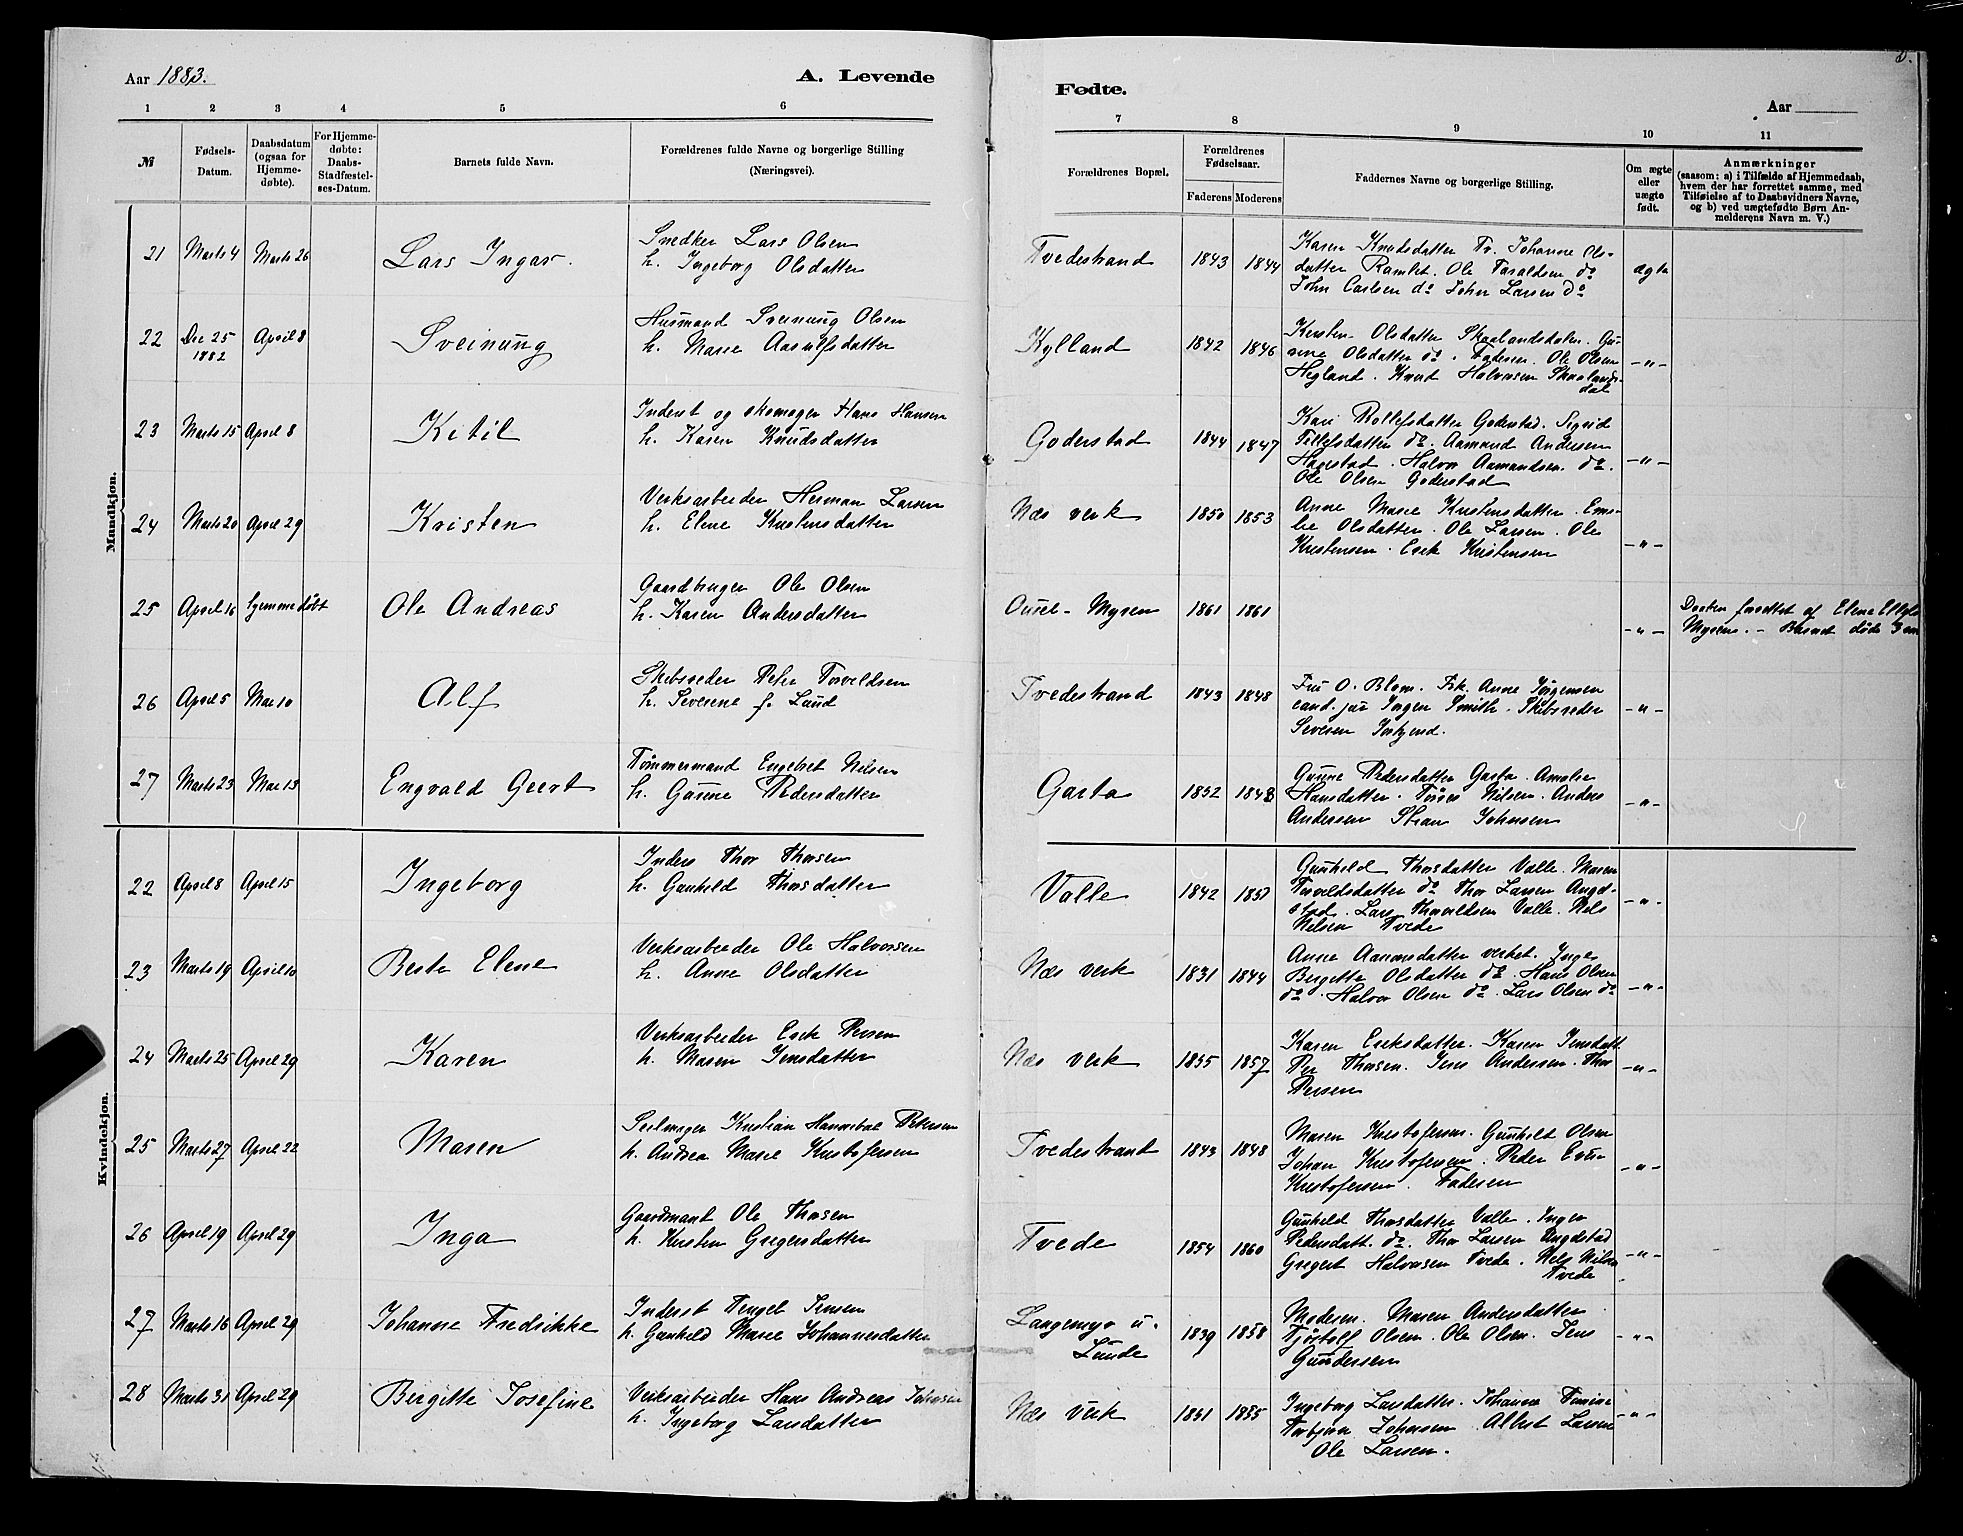 Aar 1883.
A. Levende
Fødte.
Aar
5.
1 2 3 4 5 6 7 8 9 10 11
№
Fødsels-Datum.
Daabsdatum (ogsaa for Hjemme-døbte).
For Hjemme-døbte: Daabs-Stadfæstel-ses-Datum.
Barnets fulde Navn.
Forældrenes fulde Navne og borgerlige Stilling (Næringsvei).
Forældrenes Bopæl.
Forældrenes Fødselsaar.
Faderens Moderens
Faddernes Navne og borgerlige Stilling.
Om ægte eller uægte født.
Anmærkninger (saasom: a) i Tilfælde af Hjemmedaab, hvem der har forrettet samme, med Tilføielse af to Daabsvidners Navne, og b) ved uægtefødte Børn An-melderens Navn m. V.)
Mandkjøn.
21 Marts 4 Marts 26 Lars Ingar.
Snedker Lars Olsen
h. Ingeborg Olsdatter
Tvedestrand 1843 1844
Karen Knudsdatter Tv. Johanne Ols-
datter Ramlet. Ole Taraldsen do
John Carlsen do John Larsen do
ægte
22 Dec 25 1882 April 8 Sveinung
Husmand Sveinung Olsen
h. Marie Aasulfsdatter
Kylland 1842 1846
Kirsten Olsdatter Skaalandsdalen. Gu-
nne Olsdatter do. Faderen. Ole Olsen
Hegland. Knut Halvorsen Skaalands-
dal
-"-
23 Marts 15 April 8 Ketil
Inderst og skomager Hans Hansen
h. Karen Knudsdatter
Goderstad 1844 1847
Kari Rollefsdatter Goderstad. Sigrid
Tellefsdatter do. Aamund Andersen
Hagestad. Halvor Aamundsen do.
Ole Olsen Goderstad
-"-
24 Marts 20 April 29 Kristen
Verksarbeider Herman Larsen
h. Elene Kristensdatter
Næs verk 1850 1853
Anne Marie Kristensdatter. Em-
lie Olsdatter. Ole Larsen. Ole
Kristensen. Erik Kristensen
-"-
25 April 16 hjemmedøbt Ole Andreas
Gaardbruger Ole Olsen
h. Karen Andersdatter
-Myren 1861 1861
-"-
Daaben forrettet af Elene
Myrene. - Barnet døde 3
26 April 5 Mai 10 Alf
Skibsreder Peter Torveldsen
h. Severine f. Lund
Tvedestrand 1843 1848
Fru O. Blom. Frk. Anne Jørgensen
cand. jur Jørgen Smith. Skibsreder
Severin
-"-
27 Marts 23 Mai 13 Engvald Geert
Tømmermand Engebret Nilsen
h. Gunne Pedersdatter
Garta 1852 1848
Gunne Pedersdatter Garta. Amalie
Hansdatter. Tørres Nilsen. Anders
Andersen Johnsen
-"-
Kvindekjøn.
22 April 8 April 15 Ingeborg
Inders Thor Thorsen
h. Gunhild Thorsdatter
Valle 1842 1851
Gunhild Thorsdatter Valle. Maren
Toraldsdatter do Thor Larsen Anged-
stad. Lars Thoraldsen Valle. Nels
Nelsen Tvede
-"-
23 Marts 19 April 10 Berte Elene
Verksarbeider Ole Halvorsen
h. Anne Olsdatter
Næs verk 1831 1844
Anne Aanonsdatter verket. Inge
Birgitte Olsdatter do. Hans Olsen
do. Halvor Olsen do. Lars Olsen do
-"-
24 Marts 25 April 29 Karen
Verksarbeider Erik Persen
h. Maren Jensdatter
Næs verk 1855 1857
Karen Eriksdatter. Karen Jensdatt.
Per Thorsen. Jens Andersen. Thor
Persen
-"-
25 Marts 27 April 22 Maren
Seilmager Kristian Hannibal Petersen
h. Andrea Marie Kristofersen
Tvedestrand 1843 1848
Maren Kristofersen. Gunhilt Olsen
Johan Kristofersen. Peder
Kristofersen. Faderen
-"-
26 April 19 April 29 Inga
Gaardmand Ole Thorsen
h. Kirsten Gregersdatter
Tvede 1854 1860
Gunhild Thorsdatter Valle. Inger
Pedersdatt. do. Thor Larsen Angelstad
Gregert Halvorsen Tvede. Nels Nilsen
Tvede
-"-
27 Marts 16 April 29 Johanne Fredrikke
Inderst Tengel Jensen
h. Gunhild Marie Johannesdatter
Langemyr u.
Lunde
1839 1858
Moderen. Maren Andersdatter
Tjøstolf Olsen. Ole Olsen. Jens
Gundersen
-"-
28 Marts 31 April 29 Birgitte Josefine
Verksarbeider Hans Andreas Johnsen
h. Ingeborg Larsdatter
Næs Verk 1851 1855
Ingeborg Larsdatter. Johanne
Torbjørn Johnsen. Albert Larsen
Ole Larsen.
-"-